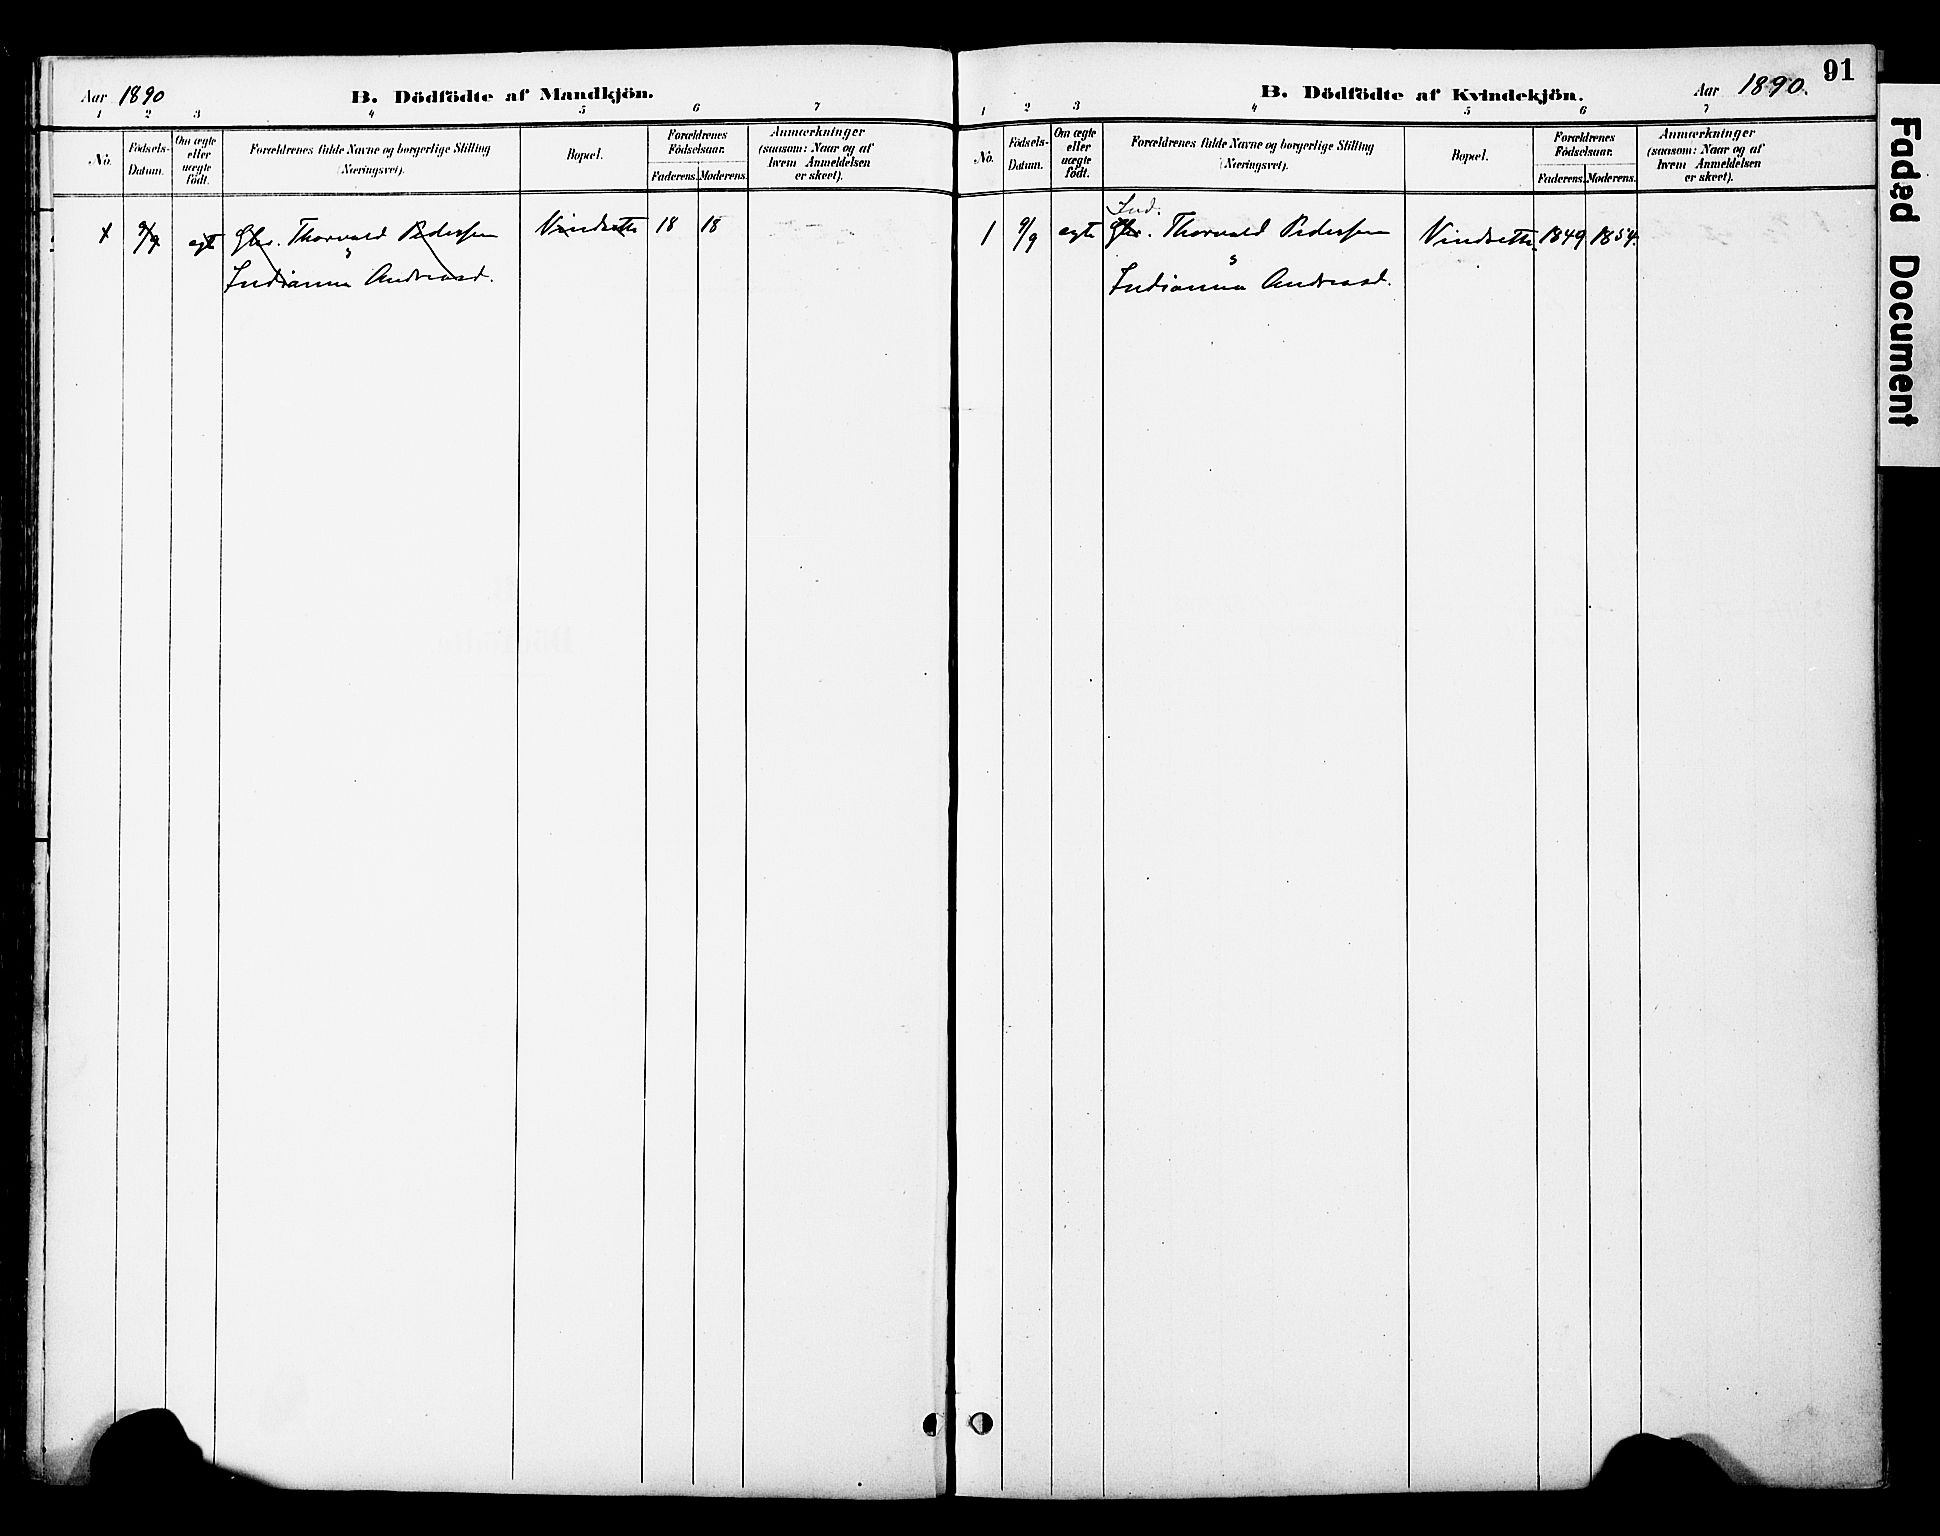 Aar 1890
B. Dödfödte af Mandkjön.
1 2 3 4 5 6 7
No.
Födsels-
Datum.
Om ægte
eller
uægte
födt.
Forældrenes fulde Navne og borgerlige Stilling
(Næringsvei).
Bopæl.
Forældrenes
Födselsaar.
Faderens. Moderens.
Anmærkninger
(saasom: Naar og af
hvem Anmeldelsen
er skeet).
1 9/9 egt Gbr. Thorvald Pederssen Vindsetti 18 18
Indianna Andreasd.
91
Aar 1890.
B. Dödfödte af Kvindekjön.
1 2 3 4 5 6 7
No.
Födsels-
Datum.
Om ægte
eller
uægte
födt.
Forældrenes fulde Navne og borgerlige Stilling
(Næringsvei).
Bopæl.
Forældrenes
Födselsaar.
Faderens. Moderens.
Anmærkninger
(saasom: Naar og af
hvem Anmeldelsen
er skeet).
Ind.
1 9/9 egte Gbr. Thorvald Pederssen Vindsetti. 1849 1854.
Indianna Andreasd.
Faded Document